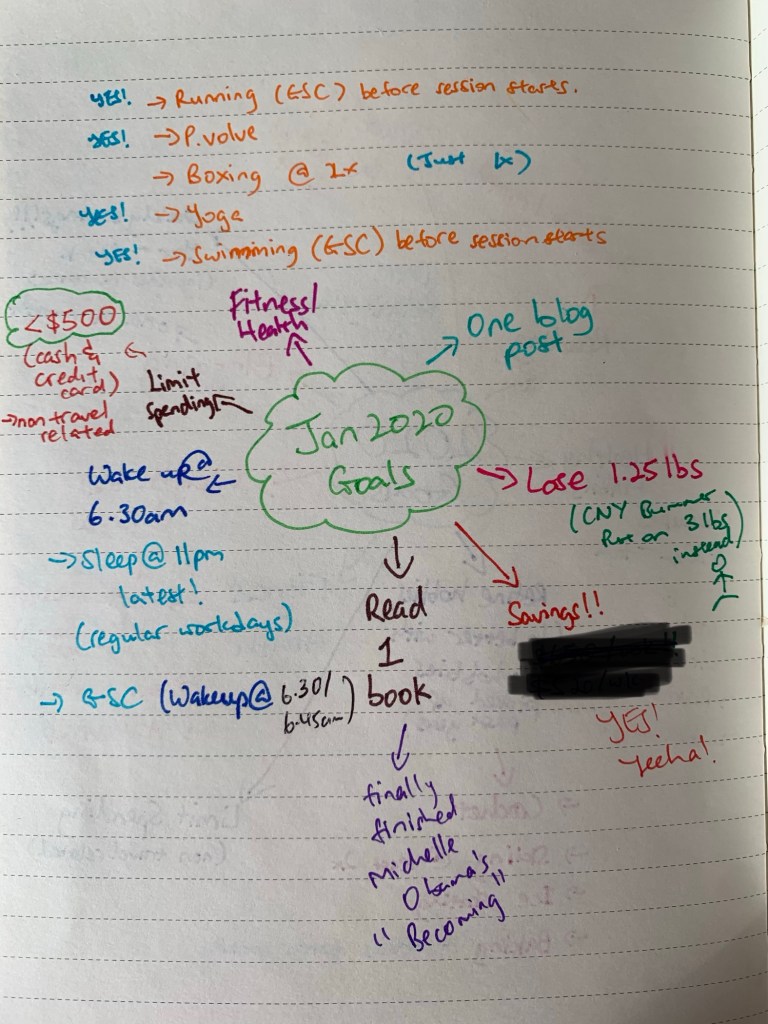 YES! → Running (GSC) before session starts.
YES! → P.volve
→ Boxing @ 1x (Just 1x)
YES! → Yoga
YES! → Swimming (GSC) before session starts
Fitness/
Health
<$500
(cash &
credit
card)
→ non travel
related
Limit
Spending
One blog
post
Jan 2020
Goals
Wake up @
6.30am
→ Sleep @ 11pm
latest!
(regular workdays)
→ GSC (Wakeup @ 6.30/
6.45am)
Lose 1.25lbs
(CNY Bummer
Put on 3lbs
instead)
Savings!!
YES!
Yeeha!
Read
1
book
finally
finished
Michelle
Obama's
"Becoming"